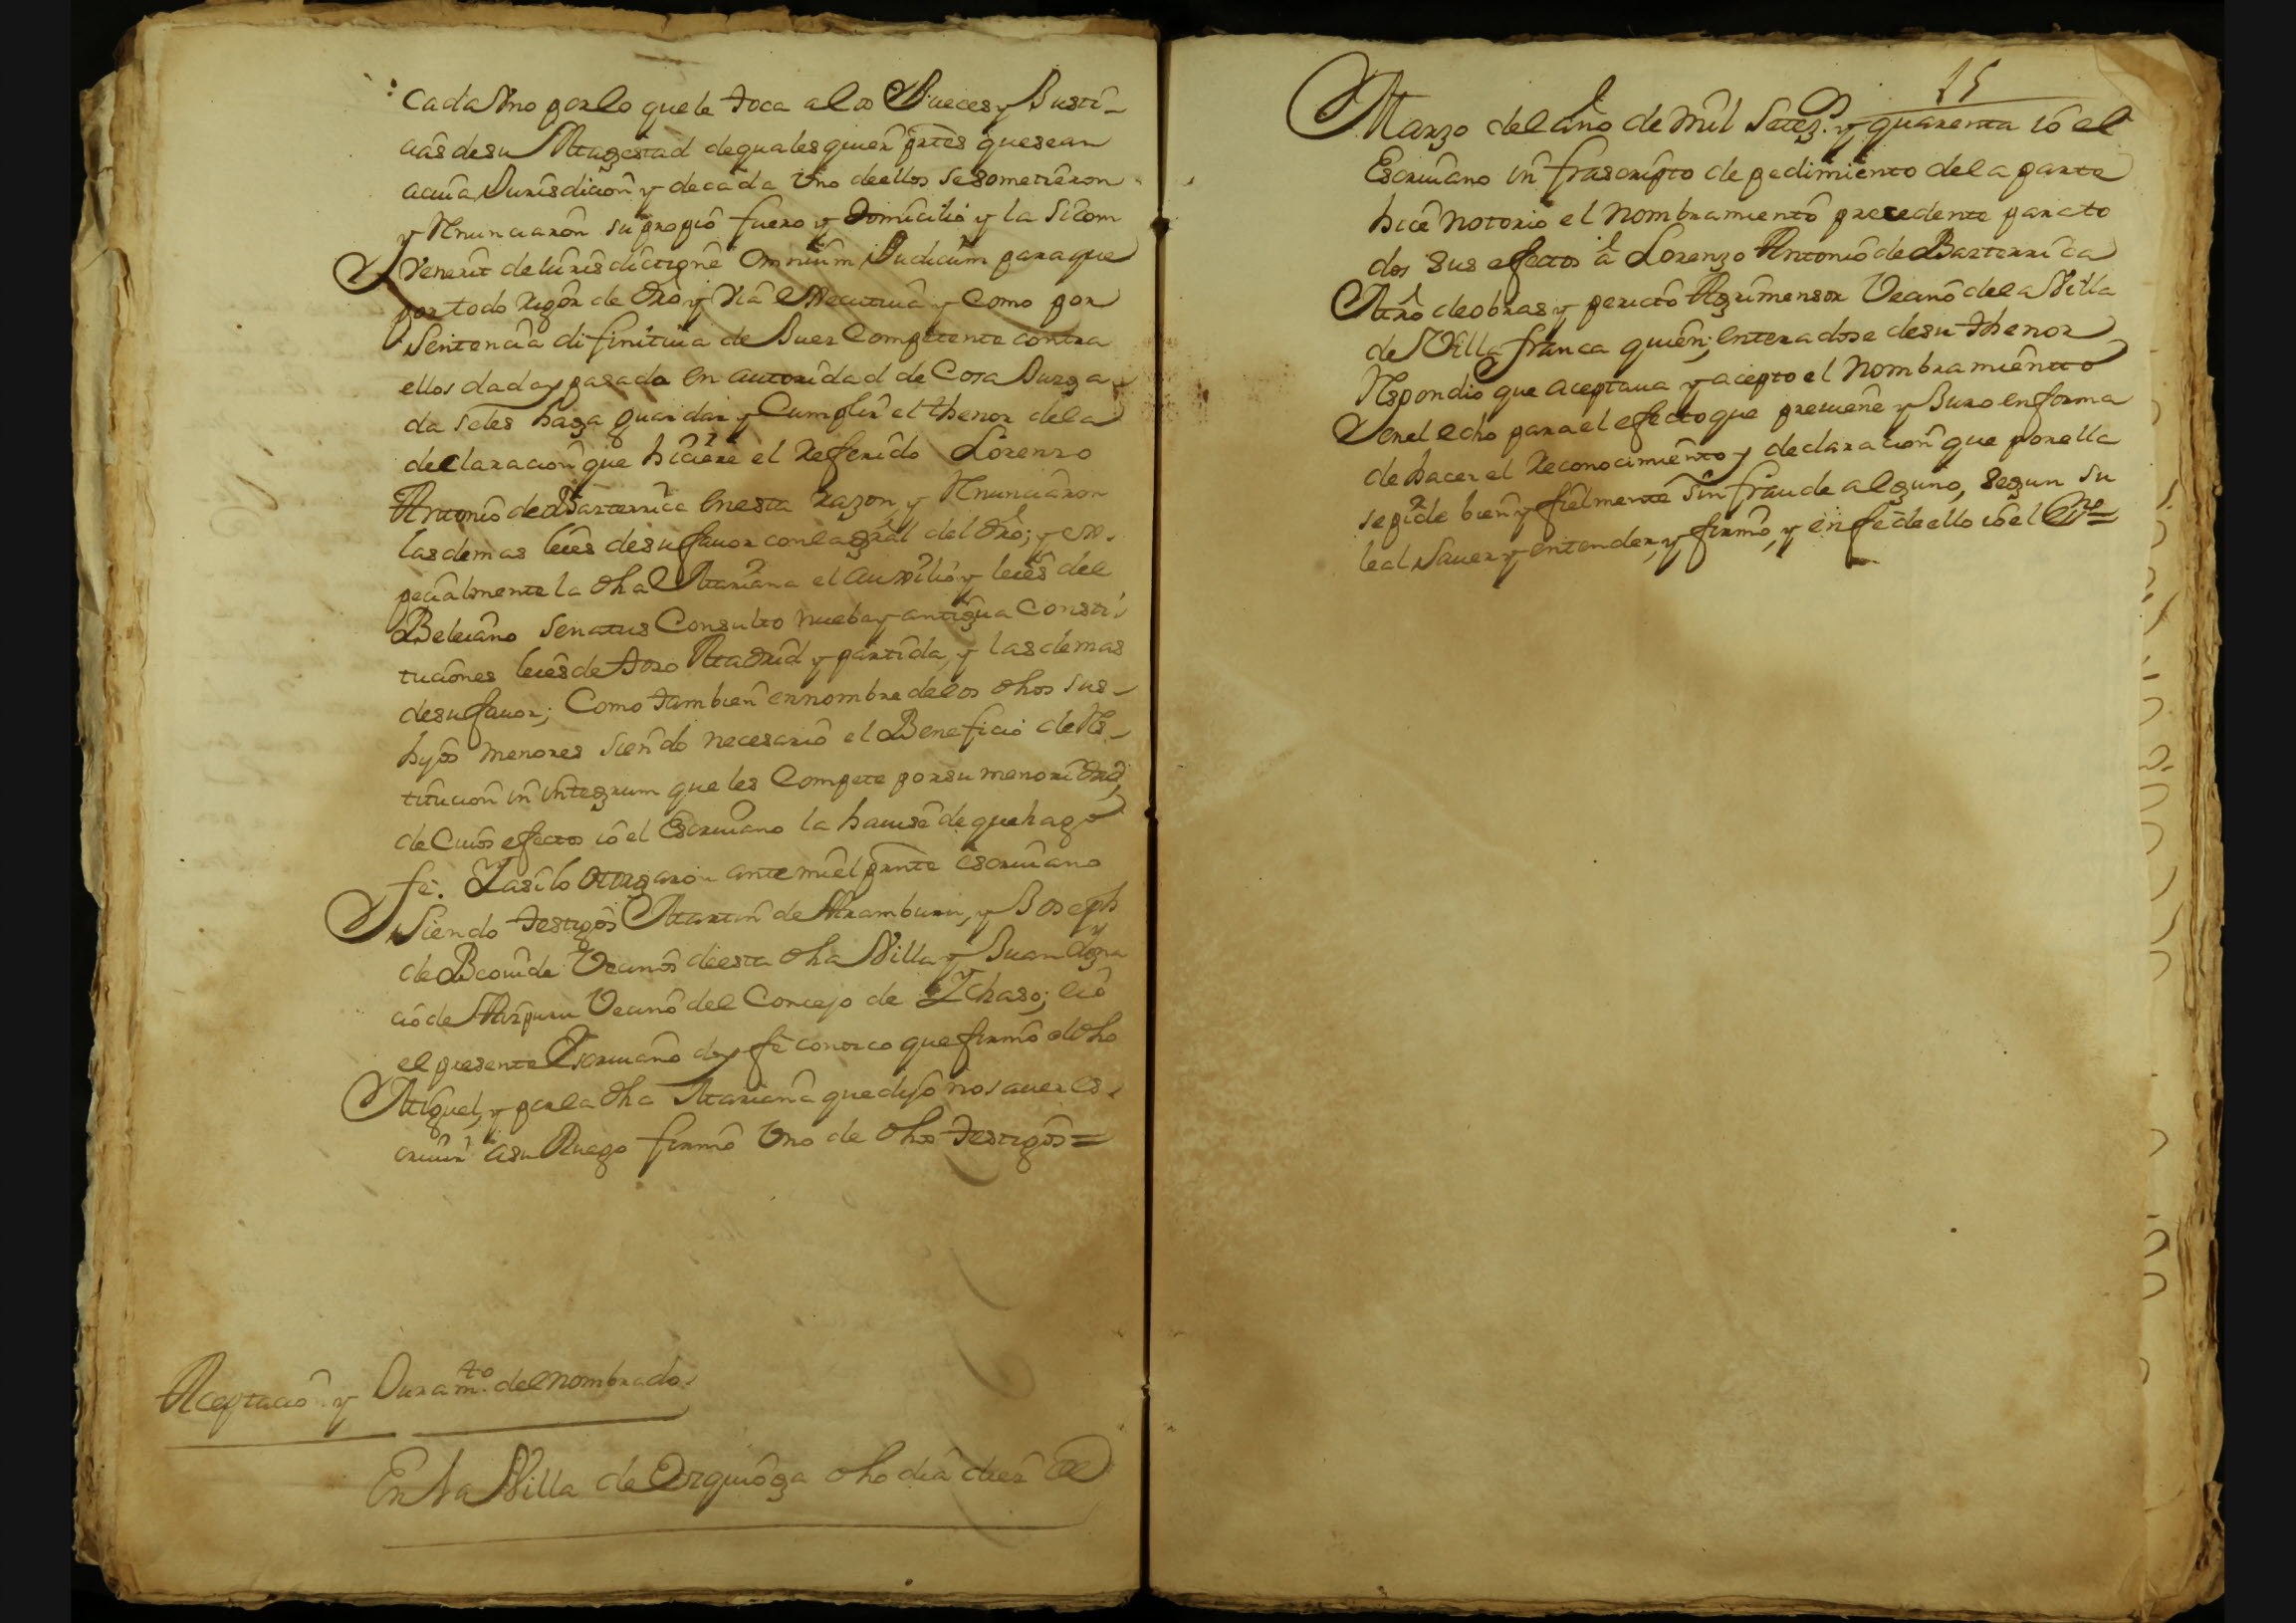 Cada Vno por lo que le toca a los Jueces y Justi-
cias de su Magestad de quales quier prtes que sean
a cuia Jurisdicion y de cada Vno de ellos se sometieron
y Rnunciaron su propio fuero y Domicilio y la Si com
Venerit de Iurisdictione Omnium Judicum para que
por todo rigor de dro y Via executiua y Como por
Sentencia difinitiua de Juez Competente contra
ellos dada y pasada en autoridad de Cosa Juzga-
da se les haga guardar y Cumplir el thenor de la
declaracion que hiciere el referido Lorenzo
Antonio de Barterrica en esta razon y Rnunciaron
las demas leies de su fauor con la gral del dro; y es-
pecialmente la dha Mariana el auxilio y leies del
Beleiano Senatus Consulto nueba y antigua Consti-
tuciones leies de toro Madrid y partida, y las demas
de su fauor; Como tambien en nombre de los dhos sus
hijos menores siendo necesario el Beneficio de Rs-
titucion in integrum que les Compete por su menoridad,
de Cuios efectos io el Escriuano la hauise de que hago
fe. Y asi lo otorgaron ante mi el prnte escriuano
Siendo testigos Martin de Aramburu, y Joseph
de Beouide Vecinos de esta dha Villa y Juan Igna
cio de Aizpuru Vecino del Concejo de Ychaso; e io
el presente Escriuano doy fe conozco que firmo el dho
Miguel, y por la dha Mariana que dijo no sauer es-
criuir a su Ruego firmo Vno de dhos testigos =
Aceptacio y Juram.to del nombrado
En la Villa de Ezquioga dho dia diez de
15
Marzo del año de Mil Setez.s y quarenta io el
Escriuano infrascripto de pedimiento de la parte
hice notorio el nombramiento precedente para to
dos sus efectos a Lorenzo Antonio de Barterrica
Mro de obras y perito Agrimensor Vecino de la Villa
de Villa franca quien; enteradose de su thenor
Rspondio que aceptaua y acepto el nombramiento
en el echo para el efecto que preuiene y Juro en forma
de hacer el reconocimiento y declaracion que por ella
se pide bien y fielmente sin fraude alguno, segun su
leal sauer y entender, y firmo, y en fe de ello io el Esno=